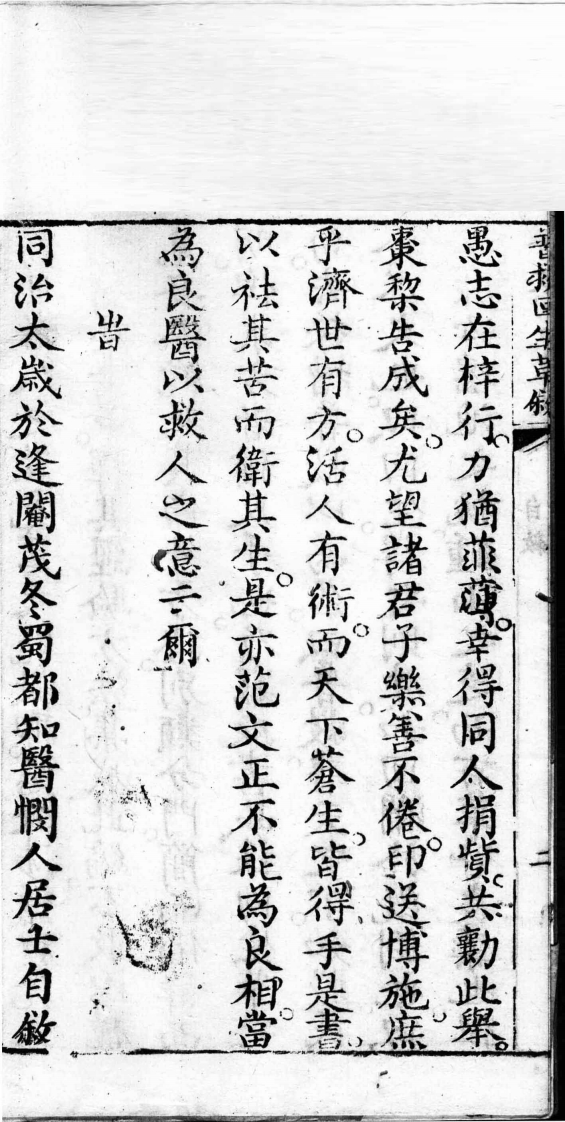 普救回生草敘
二
愚志在梓行。力猶菲薄。幸得同人捐貲。共勷此舉。
棗棃告成矣。尤望諸君子樂善不倦。印送博施。庶
乎濟世有方。活人有術。而天下蒼生。皆得手是書。
以祛其苦而衛其生。是亦范文正不能為良相。當
為良醫以救人之意云爾
旹
同治太歲於逢閹茂冬蜀都知醫憫人居士自敘